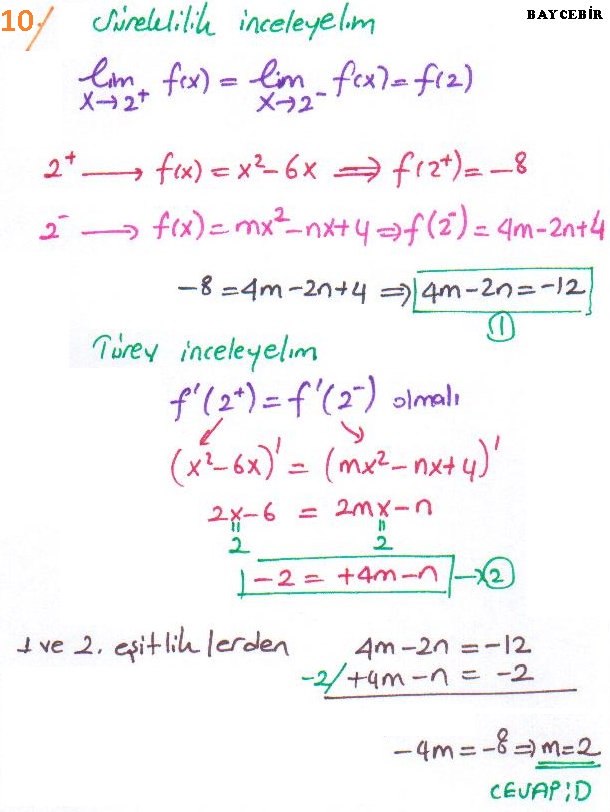 10. Süreklilik inceleyelim
BAYCEBİR
lim x→2⁺ f(x) = lim x→2⁻ f(x) = f(2)
2⁺ → f(x) = x²-6x ⟹ f(2⁺) = -8
2⁻ → f(x) = mx²-nx+4 ⟹ f(2⁻) = 4m-2n+4
-8 = 4m-2n+4 ⟹ 4m-2n = -12
1
Türev inceleyelim
f'(2⁺) = f'(2⁻) olmalı
(x²-6x)' = (mx²-nx+4)'
2x-6 = 2mx-n
= =
2 2
-2 = +4m-n → 2
1 ve 2. eşitliklerden
4m-2n = -12
-2/ +4m-n = -2
-4m = -8 ⟹ m=2
CEVAP: D